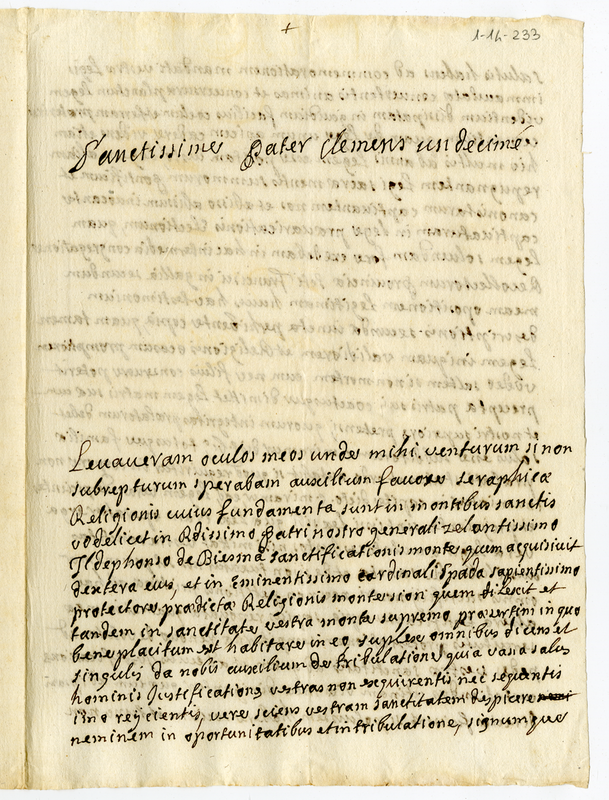 +
1-14-233
Sanctissime Pater Clemens undecime
Levaveram oculos meos unde mihi venturum si non
subrepturum sperabam auxilium favore seraphicæ
Religionis cuius fundamenta sunt in montibus sanctis
videlicet in Rdissimo Patri nostro generali zelantissimo
Ildephonso de Biesma sanctificationis monte quem acquisivit
dextera eius, et in Eminentissimo cardinali Spada sapientissimo
protectore prædictæ Religionis monte sion quem dilexit et
tandem in sanctitate vestra monte supremo præsertim in quo
beneplacitum est habitare in eo suplex omnibus dicens et
singulis da nobis auxilium de tribulatione quia vana salus
hominis Justificationes vestras non exquirentis nec sequentis
imo rejicientis, vere sciens vestram sanctitatem despicere
neminem in oportunitatibus et in tribulatione, signumque